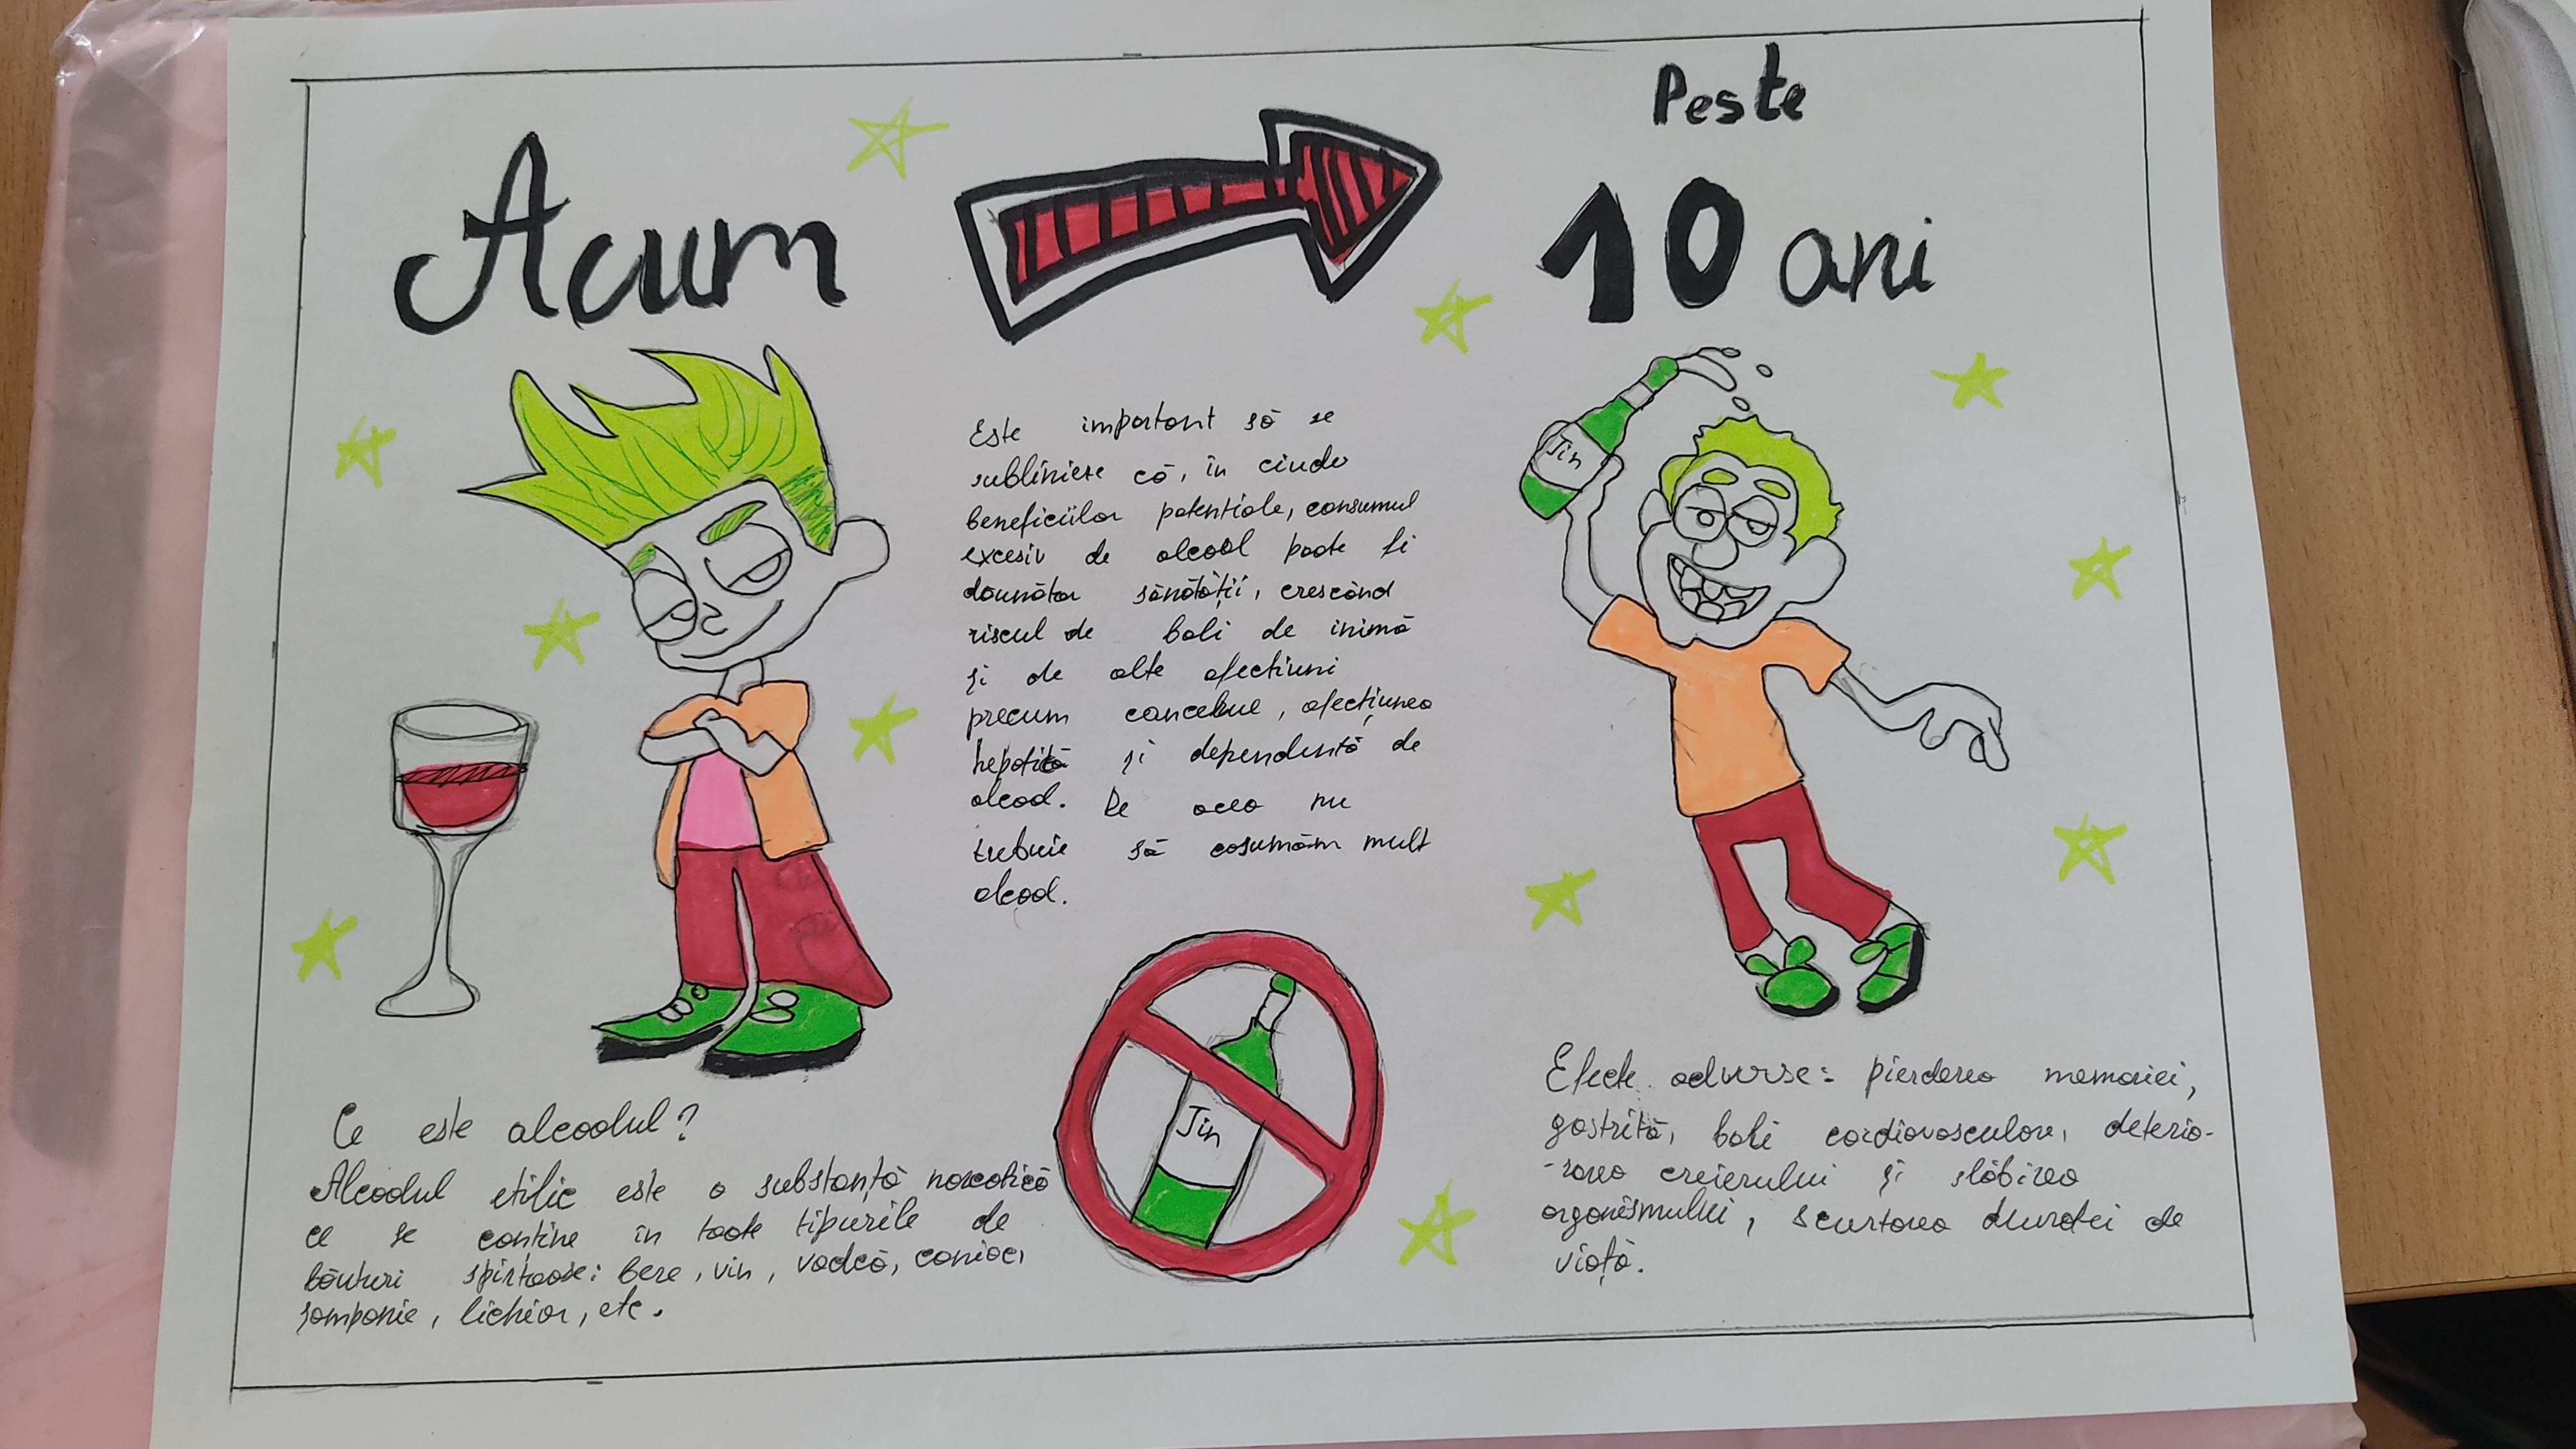 Acum
Peste
10 ani
Jin
Este important să se
subliniere că, în ciuda
beneficiilor potențiale, consumul
excesiv de alcool poate fi
dăunător sănătății, crescând
riscul de boli de inimă
și de alte afecțiuni
precum afecțiunea
hepatită și dependentă de
alcool. De acea nu
trebuie să cosumăm mult
alcool.
Jin
Ce este alcoolul?
Alcoolul etilic este o substanță narcotică
ce se conține în toate tipurile de
băuturi spirtoase: bere, vin, vodcă, coniac,
șampanie, lichior, etc.
Efecte adverse: pierderea memoriei,
gastrită, boli cardiovasculare, deterio-
-rarea creierului și slăbirea
organismului, scurtarea duratei de
viață.